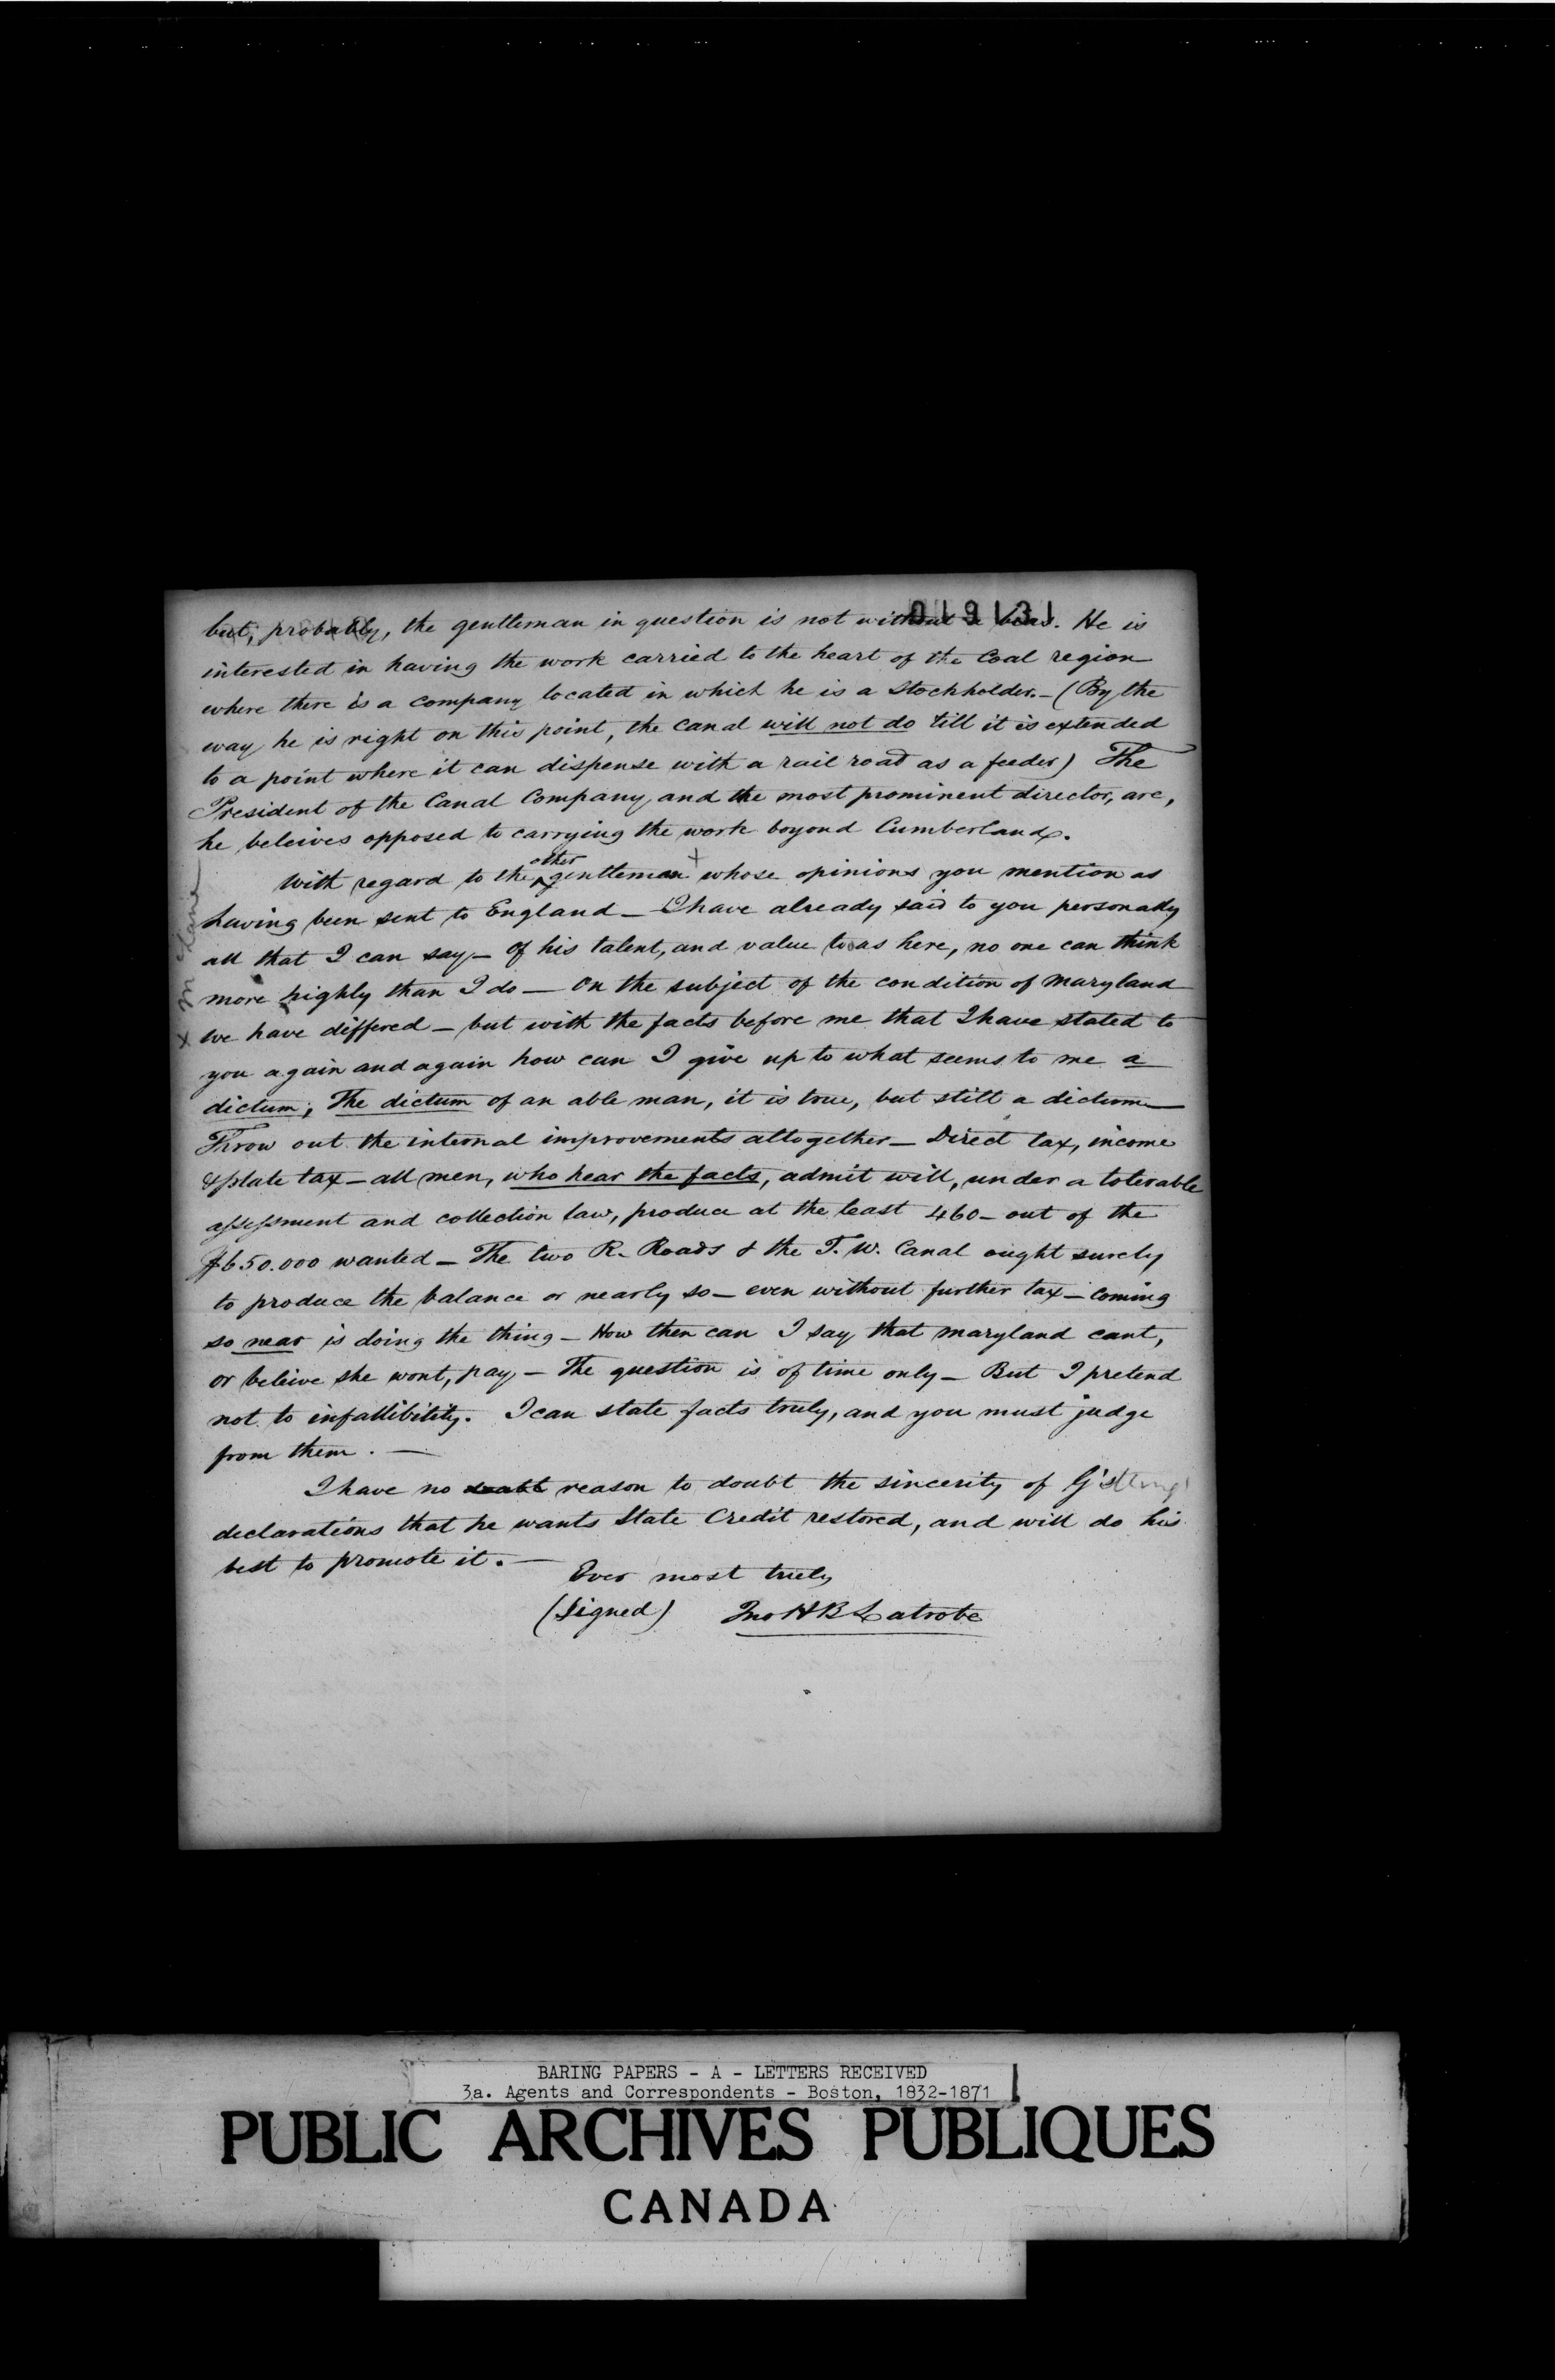 019131
but, probably, the gentleman in question is not without a bias. He is
interested in having the work carried to the heart of the Coal region
where there is a company located in which he is a Stockholder. - (By the
way he is right on this point, the canal will not do till it is extended
to a point where it can dispense with a rail road as a feeder) The
President of the Canal Company, and the most prominent director, are,
he beleives opposed to carrying the work beyond Cumberland.
With regard to the other gentleman + whose opinions you mention as
having been sent to England - I have already said to you personally
all that I can say - Of his talent, and value to us here, no one can think
more highly than I do - On the subject of the condition of Maryland
we have differed - but with the facts before me that I have stated to
you again and again how can I give up to what seems to me a
dictum; The dictum of an able man, it is true, but still a dictum
Throw out the internal improvements altogether - Direct tax, income
& plate tax - all men, who hear the facts, admit will, under a tolerable
assessment and collection law, produce at the least 460 - out of the
$650.000 wanted - The two R. Roads & the T. W. Canal ought surely
to produce the balance or nearly so - even without further tax - coming
so near is doing the thing - How then can I say that Maryland cant,
or beleive she wont, pay - The question is of time only - But I pretend
not to infallibility. I can state facts truly, and you must judge
from them. -
I have no doubt reason to doubt the sincerity of G's
declarations that he wants State Credit restored, and will do his
best to promote it. -
Ever most truly
(Signed) Jno H B Latrobe
x McLane
BARING PAPERS - A - LETTERS RECEIVED
3a. Agents and Correspondents - Boston, 1832-1871
PUBLIC ARCHIVES PUBLIQUES
CANADA